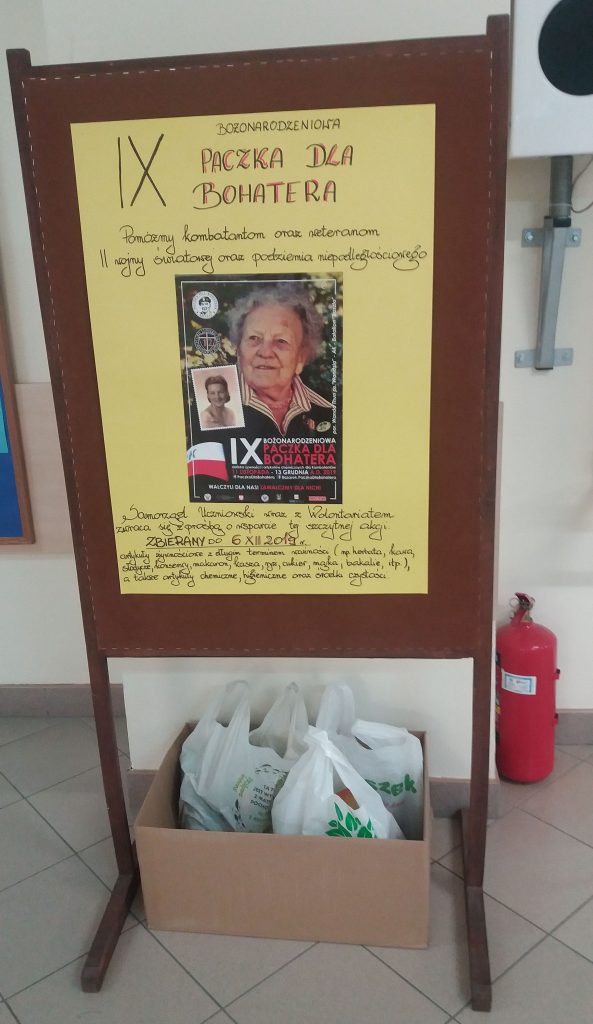 BOŻONARODZENIOWA
IX PACZKA DLA
BOHATERA
Pomóżmy kombatantom oraz weteranom
II wojny światowej oraz podziemia niepodległościowego
IX
BOŻONARODZENIOWA
PACZKA DLA
BOHATERA
11 LISTOPADA - 13 GRUDNIA A.D. 2019
WALCZYLI DLA NAS! ZAWALCZMY DLA NICH!
Samorząd Uczniowski wraz z Wolontariatem
zwraca się z prośbą o wsparcie tej szczytnej akcji.
ZBIERAMY DO 6 XII 2019 r.
artykuły żywnościowe z długim terminem ważności (np. herbata, kawa,
słodycze, konserwy, makaron, kasza, ryż, cukier, mąka, bakalie, itp.),
a także artykuły chemiczne, higieniczne oraz środki czystości.